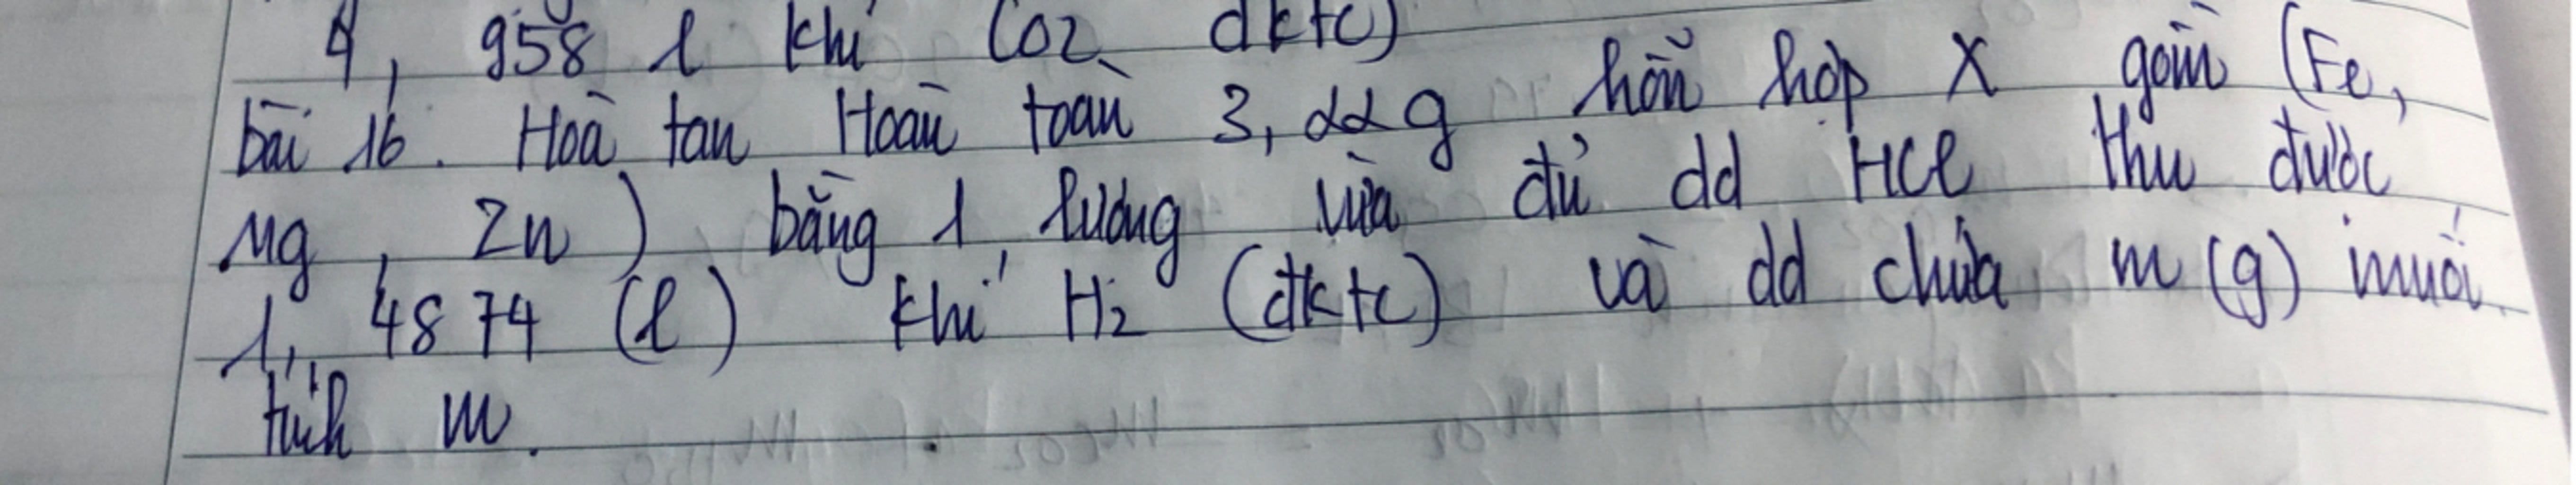 4, 958 l khí CO2 đktc)
bài 16. Hoà tan Hoàn toàn 3,22 g hỗn hợp X gồm (Fe,
Mg, Zn) bằng 1 lượng vừa đủ dd HCl thu được
1, 4874 (l) khí H2 (đktc) và dd chứa m (g) muối.
tính m.